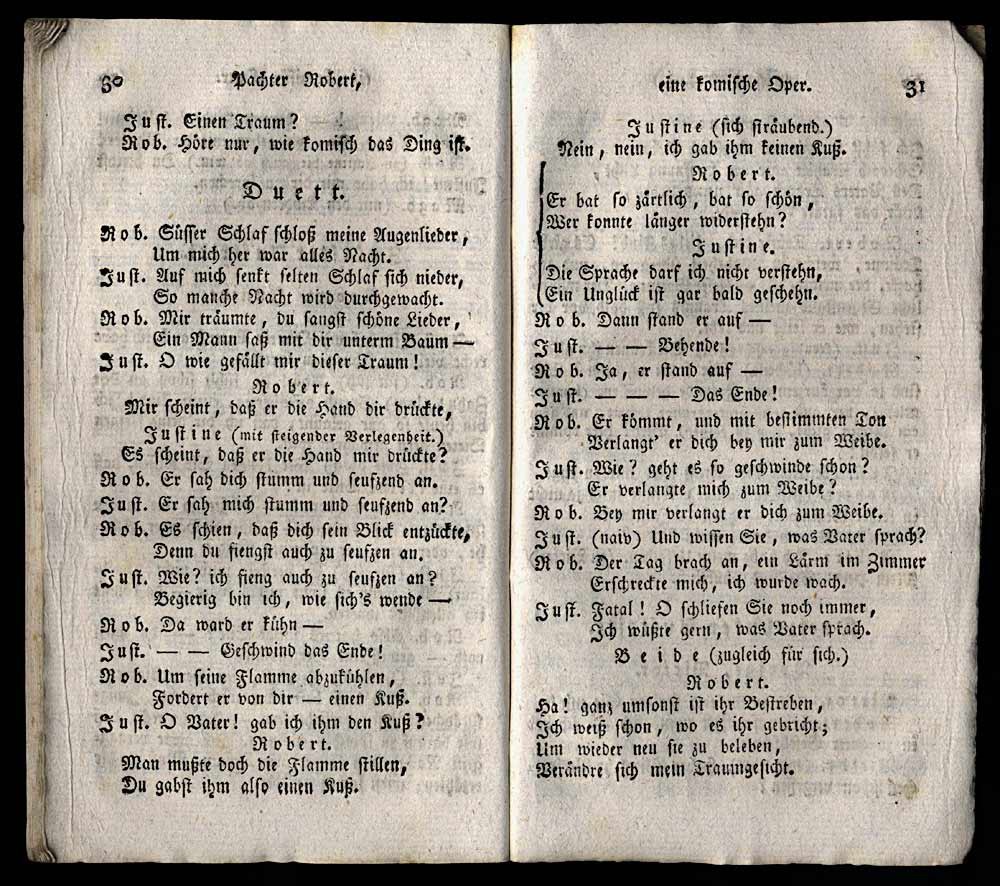 30 Pachter Robert,
Just. Einen Traum?
Rob. Höre nur, wie komisch das Ding ist.
Duett.
Rob. Süsser Schlaf schloß meine Augenlieder,
Um mich her war alles Nacht.
Just. Auf mich senkt selten Schlaf sich nieder,
So manche Nacht wird durchgewacht.
Rob. Mir träumte, du sangst schöne Lieder,
Ein Mann saß mit dir unterm Baum —
Just. O wie gefällt mir dieser Traum!
Robert.
Mir scheint, daß er die Hand dir drückte,
Justine (mit steigender Verlegenheit.)
Es scheint, daß er die Hand mir drückte?
Rob. Er sah dich stumm und seufzend an.
Just. Er sah mich stumm und seufzend an?
Rob. Es schien, daß dich sein Blick entzückte,
Denn du fiengst auch zu seufzen an.
Just. Wie? ich fieng auch zu seufzen an?
Begierig bin ich, wie sich's wende —
Rob. Da ward er kühn —
Just. — — Geschwind das Ende!
Rob. Um seine Flamme abzukühlen,
Fordert er von dir — einen Kuß.
Just. O Vater! gab ich ihm den Kuß?
Robert.
Man mußte doch die Flamme stillen,
Du gabst ihm also einen Kuß.
eine komische Oper. 31
Justine (sich sträubend.)
Nein, nein, ich gab ihm keinen Kuß.
Robert.
Er bat so zärtlich, bat so schön,
Wer konnte länger widerstehn?
Justine.
Die Sprache darf ich nicht verstehn,
Ein Unglück ist gar bald geschehn.
Rob. Dann stand er auf —
Just. — — Behende!
Rob. Ja, er stand auf —
Just. — — — Das Ende!
Rob. Er kömmt, und mit bestimmten Ton
Verlangt' er dich bey mir zum Weibe.
Just. Wie? geht es so geschwinde schon?
Er verlangte mich zum Weibe?
Rob. Bey mir verlangt er dich zum Weibe.
Just. (naiv) Und wissen Sie, was Vater sprach?
Rob. Der Tag brach an, ein Lärm im Zimmer
Erschreckte mich, ich wurde wach.
Just. Fatal! O schliefen Sie noch immer,
Ich wüßte gern, was Vater sprach.
Beide (zugleich für sich.)
Robert.
Ha! ganz umsonst ist ihr Bestreben,
Ich weiß schon, wo es ihr gebricht;
Um wieder neu sie zu beleben,
Verändre sich mein Traumgesicht.